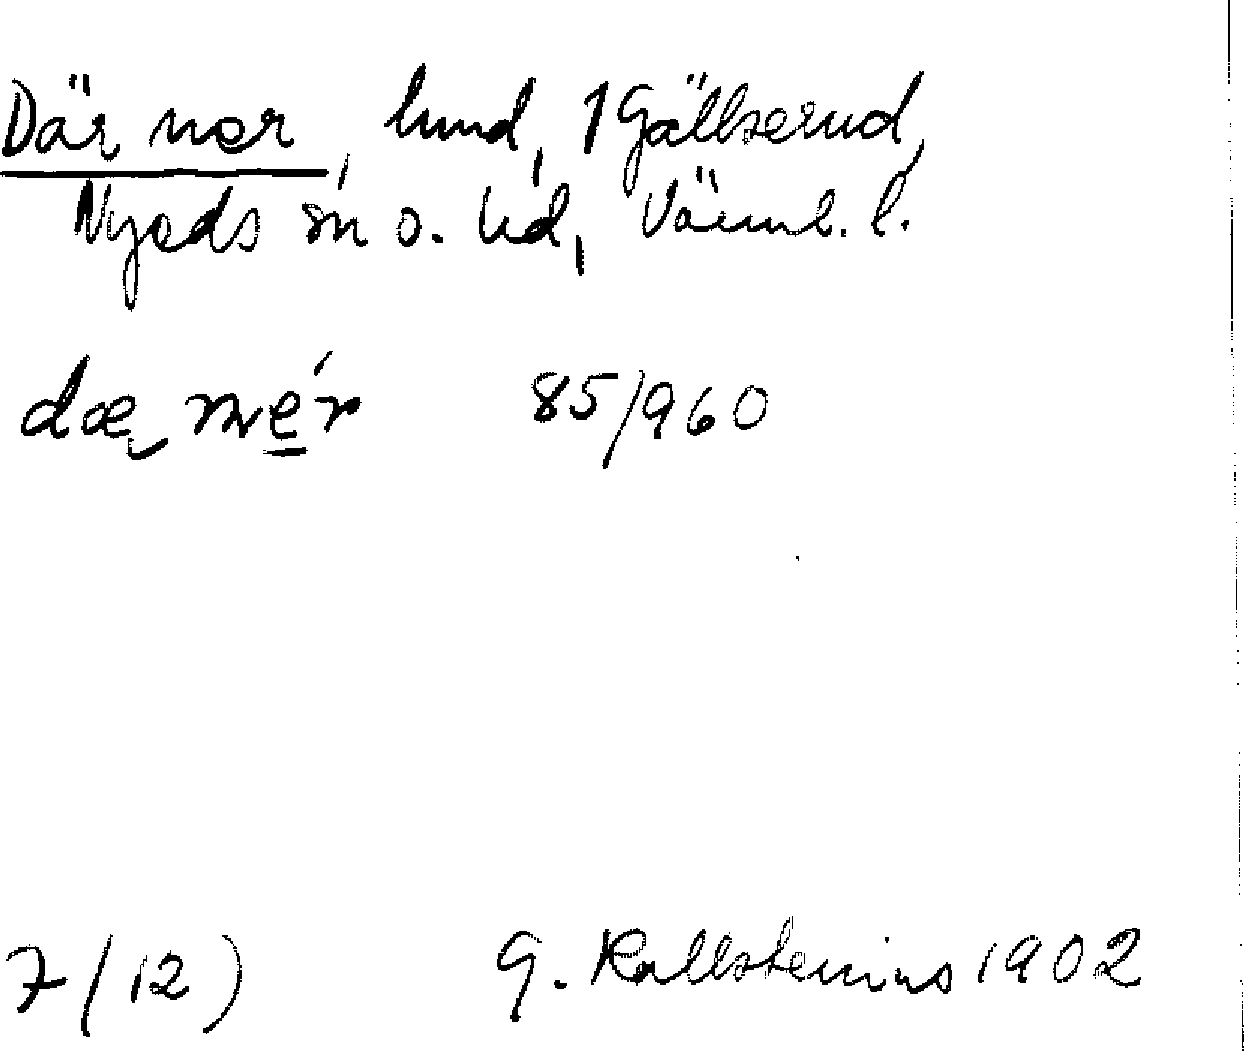 Där ner, hund, 1 Gällserud,
Nyeds sn o. hd, Värml. l.
dæ nér 85/960
7 (12) G. Kallstenius 1902